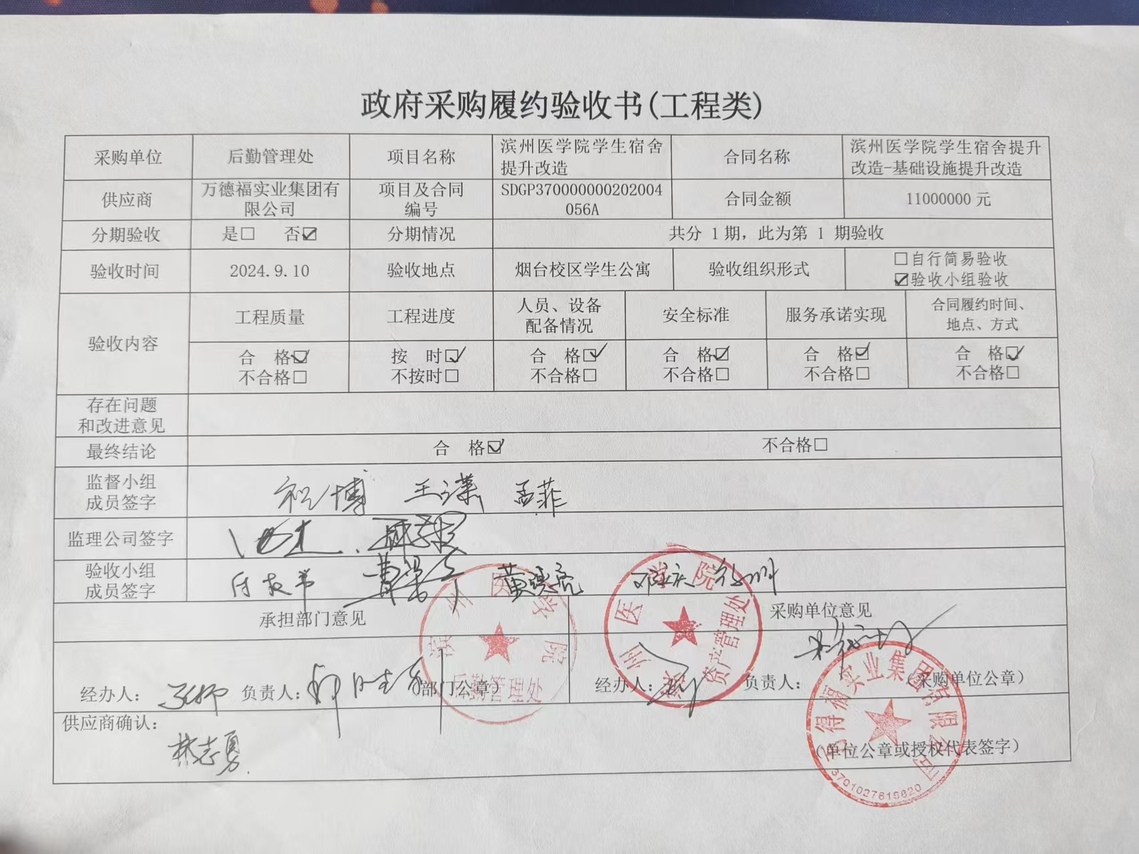 政府采购履约验收书(工程类)
采购单位 后勤管理处 项目名称 滨州医学院学生宿舍提升改造 合同名称 滨州医学院学生宿舍提升改造-基础设施提升改造
供应商 万德福实业集团有限公司 项目及合同编号 SDGP370000000202004056A 合同金额 11000000 元
分期验收 是□ 否☑ 分期情况 共分 1 期，此为第 1 期验收
验收时间 2024.9.10 验收地点 烟台校区学生公寓 验收组织形式 □自行简易验收
☑验收小组验收
验收内容 工程质量 工程进度 人员、设备配备情况 安全标准 服务承诺实现 合同履约时间、地点、方式
合 格☑ 按 时☑ 合 格☑ 合 格☑ 合 格☑ 合 格☑
不合格□ 不按时□ 不合格□ 不合格□ 不合格□ 不合格□
存在问题
和改进意见
最终结论 合 格☑ 不合格□
监督小组
成员签字
祝博 孟菲
监理公司签字
验收小组
成员签字
黄晓亮
承担部门意见 采购单位意见
经办人： 负责人： 部门公章）
经办人： 负责人： 采购单位公章）
供应商确认：
林志勇
（单位公章或授权代表签字）
滨州医学院
后勤管理处
滨州医学院
资产管理处
得福实业集团有限公司
3701027616820